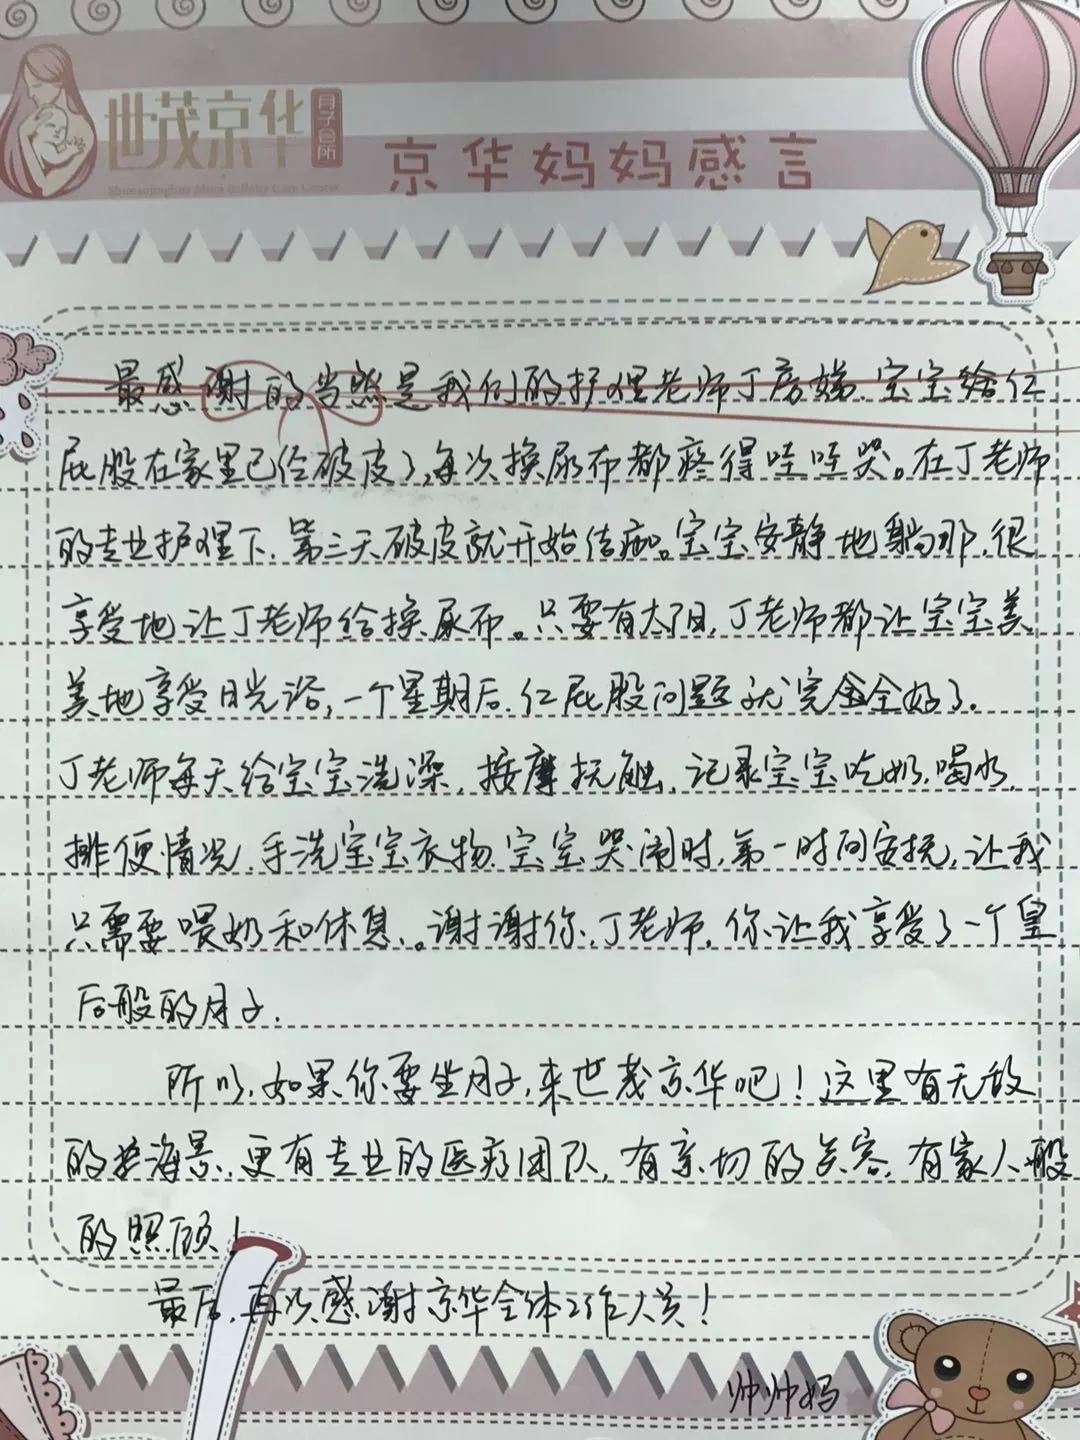 世茂京华 月子会所
京华妈妈感言
最感谢的当然是我们的护理老师丁房娣,宝宝红
屁股在家里已经破皮了,每次换尿布都疼得哇哇哭。在丁老师
的专业护理下,第三天破皮就开始结痂。宝宝安静地躺那,很
享受地让丁老师给换尿布。只要有太阳,丁老师都让宝宝美
美地享受日光浴,一个星期后,红屁股问题就完全好了。
丁老师每天给宝宝洗澡,按摩抚触,记录宝宝吃奶,喝水,
排便情况,手洗宝宝衣物,宝宝哭闹时,第一时间安抚,让我
只需要喂奶和休息。谢谢你,丁老师,你让我享受了一个皇
后般的月子。
所以,如果你要坐月子,来世茂京华吧!这里有无敌
的海景,更有专业的医疗团队,有亲切的笑容,有家人般
的照顾!
最后,再次感谢京华全体工作人员!
帅帅妈